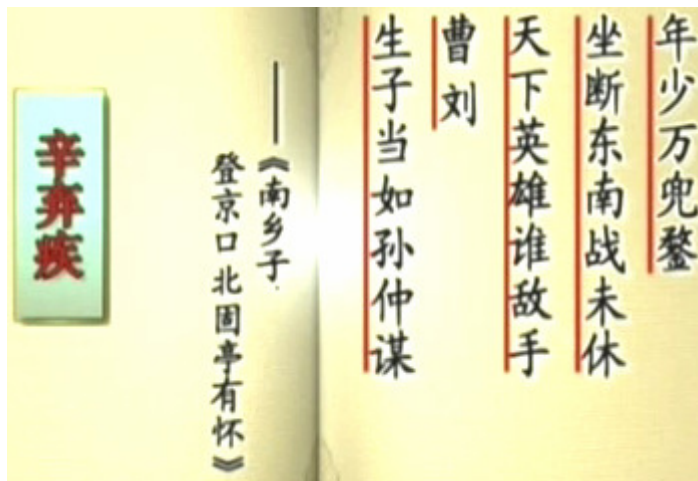 年少万兜鍪
坐断东南战未休
天下英雄谁敌手
曹刘
生子当如孙仲谋
——《南乡子·
登京口北固亭有怀》
辛弃疾